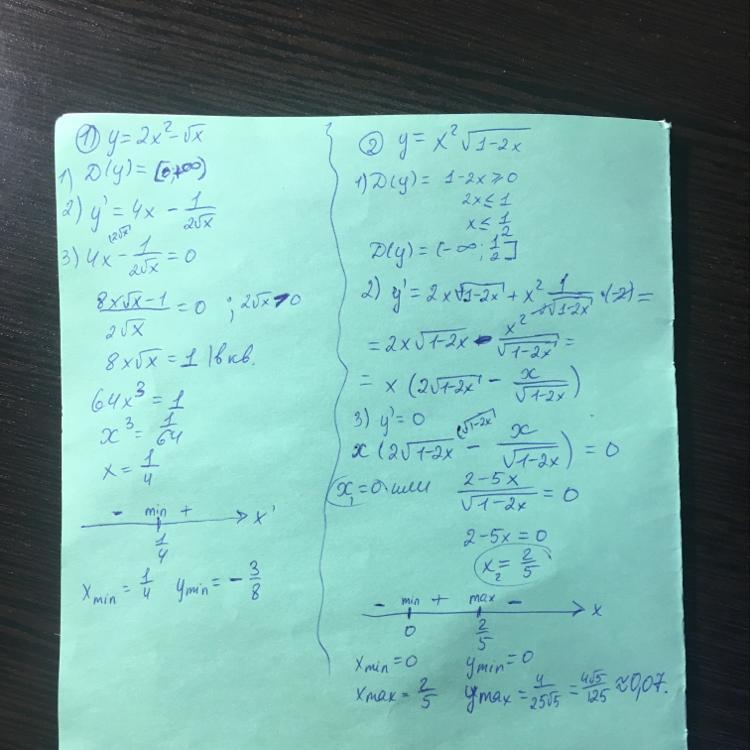 ① y = 2x² - √x
1) D(y) = [0, +∞)
2) y' = 4x - 1/(2√x)
3) 4x - 1/(2√x) = 0
(8x√x - 1)/(2√x) = 0 ; 2√x > 0
8x√x = 1 | в кв.
64x³ = 1
x³ = 1/64
x = 1/4
- min + x
1/4
xmin = 1/4 ymin = -3/8
② y = x² √(1-2x)
1) D(y) = 1-2x ≥ 0
2x ≤ 1
x ≤ 1/2
D(y) = (-∞; 1/2]
2) y' = 2x√(1-2x) + x² 1/(2√(1-2x)) · (-2) =
= 2x√(1-2x) - x²/√(1-2x) =
= x (2√(1-2x) - x/√(1-2x))
3) y' = 0
(√(1-2x)
x (2√(1-2x) - x/√(1-2x)) = 0
x₁ = 0 или (2-5x)/√(1-2x) = 0
2-5x = 0
x₂ = 2/5
- min + max - x
0 2/5
xmin = 0 ymin = 0
xmax = 2/5 ymax = 4/(25√5) = 4√5/125 ≈ 0,07.